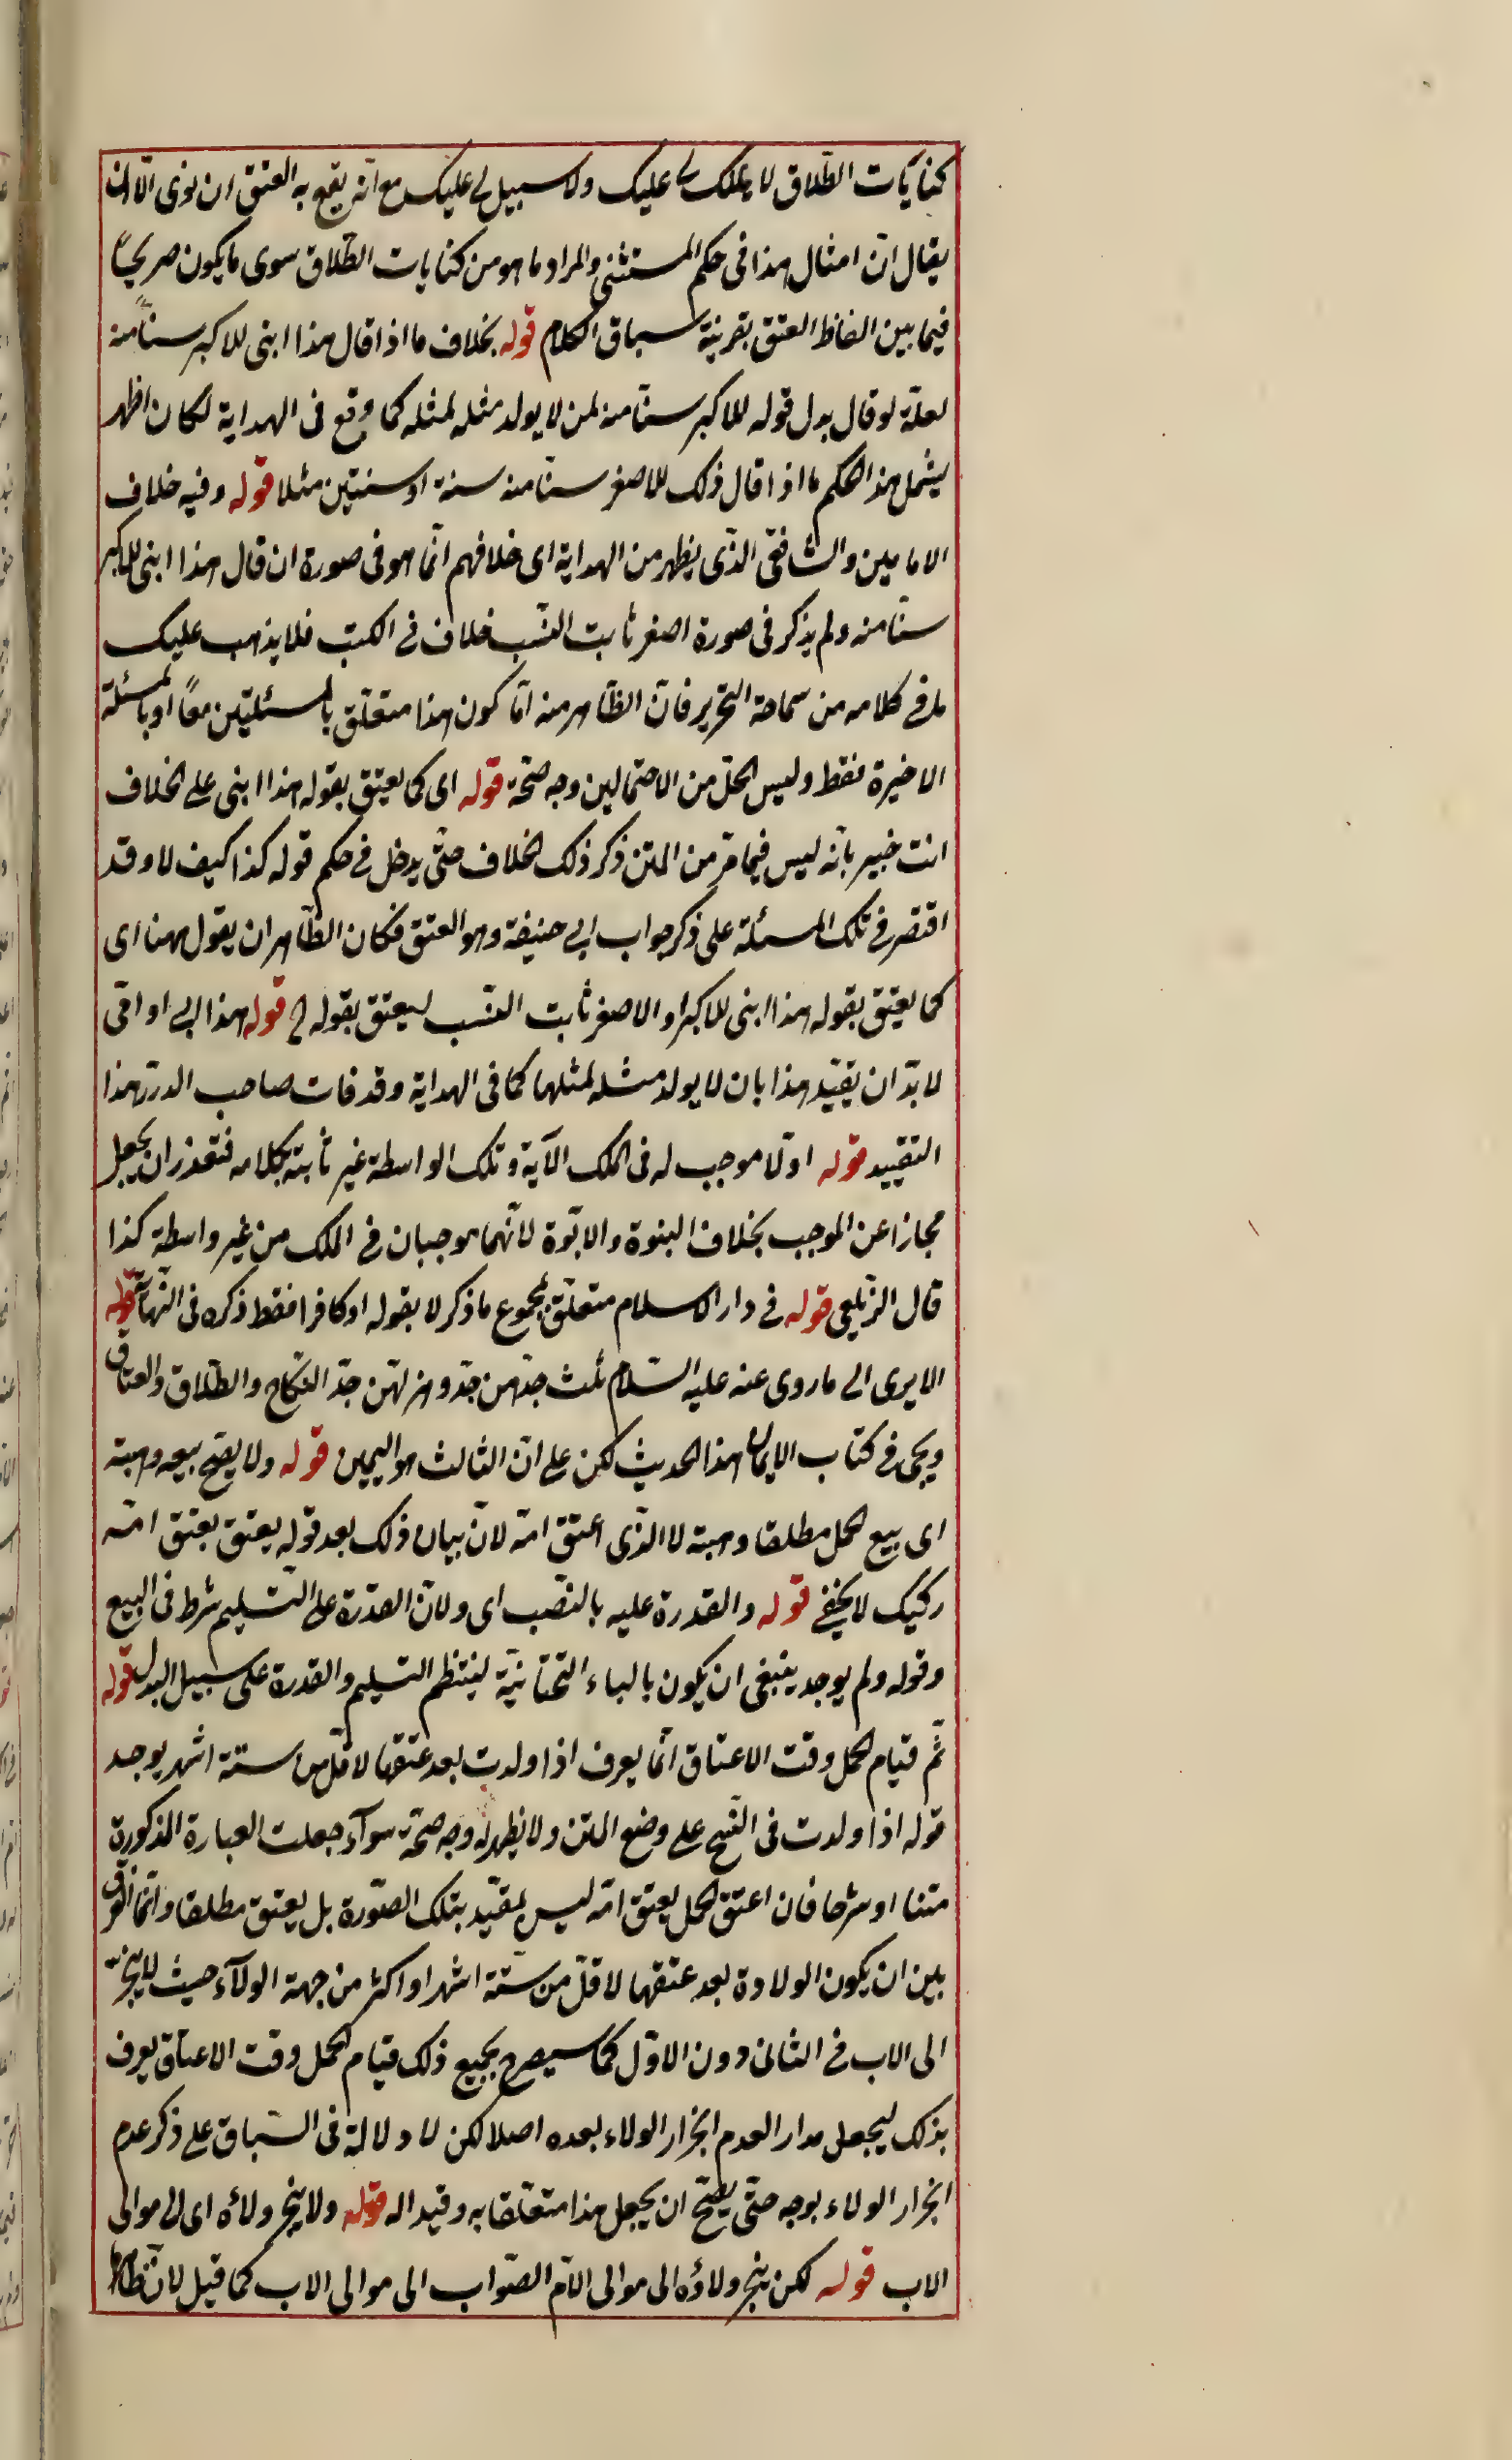 كنايات الطّلاق لا يملك لى عليك ولا سبيل لى عليك مع انّه يقع به العتق ان نوى الّا ان
يقال انّ امثال هذا فى حكم المستثنى والمراد ما هو من كنايات الطّلاق سوى ما يكون صريحاً
فيما بين الفاظ العتق بقرينة سياق الكلام قوله بخلاف ما اذا قال هذا ابنى للاكبر سنّا منه
لعلّه لو قال بدل قوله للاكبر سنّا منه لمن لا يولد مثله لمثله كما وقع فى الهداية لكان اظهر
ليشمل هذا الحكم ما اذا قال ذلك للاصغر سنّا منه سنة او سنتين مثلا قوله وفيه خلاف
الامامين والشافعى الذى يظهر من الهداية اى خلافهم انّما هو فى صورة ان قال هذا ابنى للاكبر
سنّا منه ولم يذكر فى صورة اصغر ثابت النسب خلاف فى الكتب فلا يذهب عليك
ما فى كلامه من سماحة التحرير فانّ الظّاهر منه امّا كون هذا متعلّق بالمسئلتين معاً او بالمسئلة
الاخيرة فقط وليس لكلّ من الاحتمالين وجه صحّة قوله اى كما يعتق بقوله هذا ابنى على الخلاف
انت خبير بانّه ليس فيما مرّ من المتن ذكر ذلك الخلاف حتّى يدخل فى حكم قوله كذا كيف لا وقد
اقتصر فى تلك المسئلة على ذكر جواب ابى حنيفة وهو العتق فكان الظّاهر ان يقول ههنا اى
كما يعتق بقوله هذا ابنى للاكبر او الاصغر ثابت النسب ليعتق بقوله ح قوله هذا ابى او امّى
لا بدّ ان يقيّد هذا بان لا يولد مثله لمثلهما كما فى الهداية وقد فات صاحب الدرر هذا
التقييد قوله او لا موجب له فى الملك الآية وتلك الواسطة غير ثابتة بكلامه فتعذر ان يجعل
مجازا عن الموجب بخلاف البنوة والابوّة لانّهما موجبان فى الملك من غير واسطة كذا
قال الزيلعى قوله فى دار الاسلام متعلّق بمجموع ما ذكر لا بقوله او كافرا فقط ذكره فى النّهاية قوله
الا يرى الى ما روى عنه عليه السّلام ثلث جدّهن جدّ وهزلهنّ جدّ النكاح والطّلاق والعتاق
ويجى فى كتاب الايمان هذا الحديث لكن على انّ الثالث هو اليمين قوله ولا يصحّ بيعه وهبته
اى بيع الحمل مطلقا وهبته لا الّذى اعتق امّه لانّ بيان ذلك بعد قوله يعتق بعتق امّه
ركيك لا يخفى قوله والقدرة عليه بالنّصب اى ولانّ القدرة على التّسليم شرط فى البيع
وقوله ولم يوجد ينبغى ان يكون بالياء التّحتانيّة لينتظم التسليم والقدرة على سبيل البدل قوله
ثمّ قيام الحمل وقت الاعتاق انّما يعرف اذا ولدت بعد عتقها لاقلّ من ستة اشهر يوجد
قوله اذا ولدت فى النّسخ على وضع المتن ولا يظهر له وجه صحّة سوآء جعلت العبارة المذكورة
متنا او شرحا فان اعتق الحمل يعتق امّه ليس بمقيّد بتلك الصّورة بل يعتق مطلقا وانّما الفرق
بين ان يكون الولادة بعد عتقها لاقلّ من ستّة اشهر او اكثر من جهة الولآء حيث لا ينجرّ
الى الاب فى الثانى دون الاوّل كما سيصرح بجميع ذلك قيام الحمل وقت الاعتاق يعرف
بذلك ليجعل مدار العدم انجرار الولاء بعده اصلا لكن لا دلالة فى السّباق على ذكر عدم
انجرار الولاء بوجه حتّى يصحّ ان يجعل هذا متعلّقا به وقيدا له قوله ولا ينجر ولاؤه اى الى موالى
الاب قوله لكن ينجر ولاؤه الى موالى الامّ الصّواب الى موالى الاب كما قيل لانّ